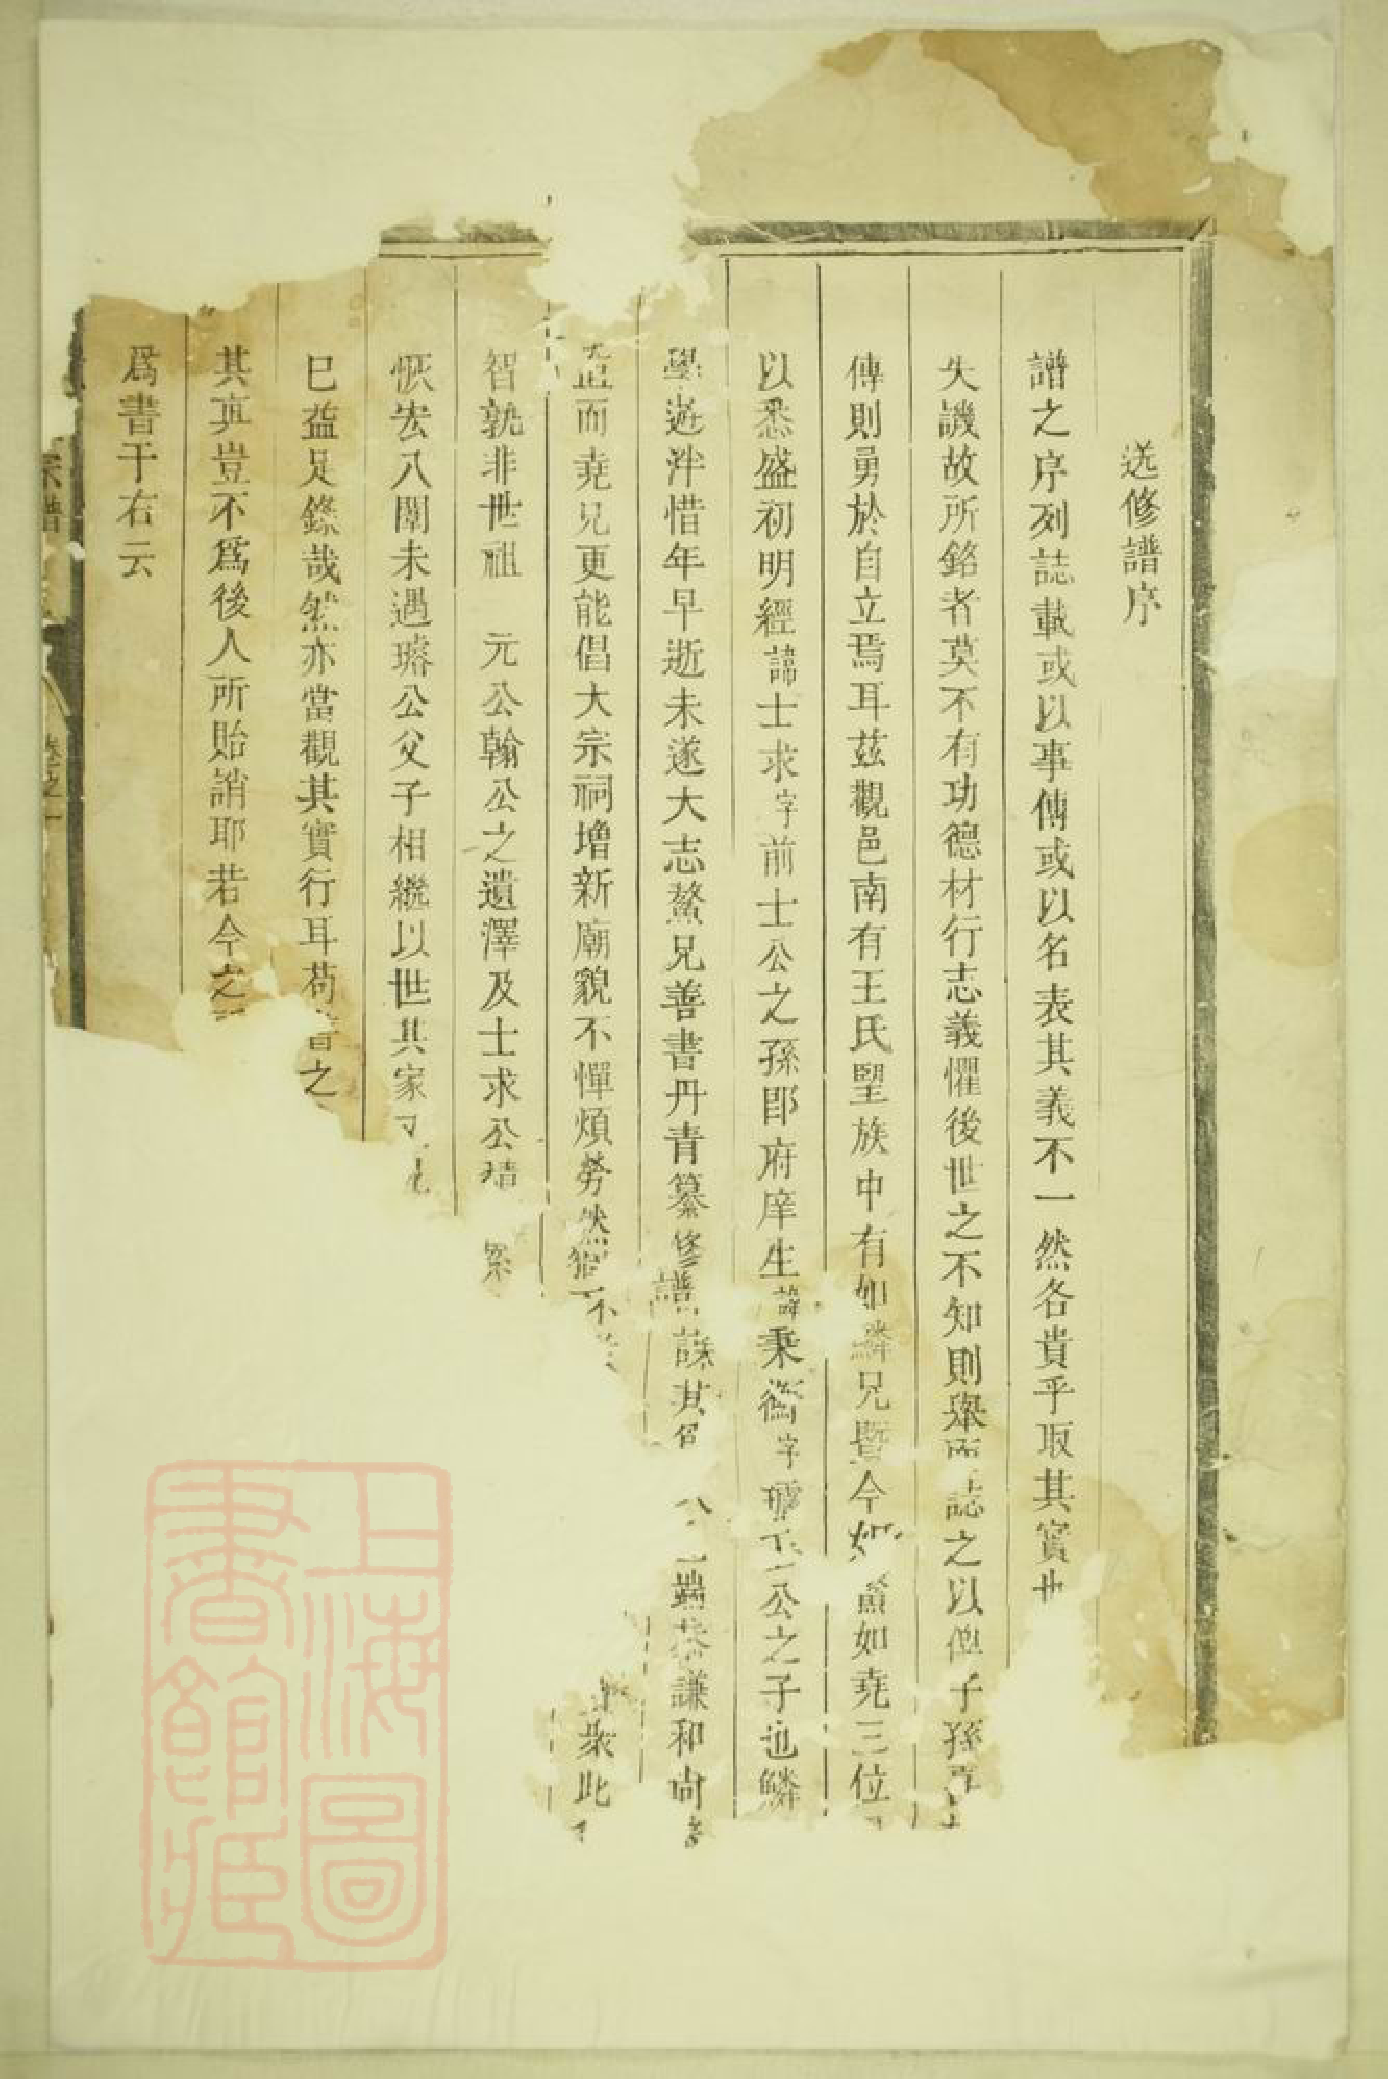 迭修譜序
譜之序列誌載或以事傳或以名表其義不一然各貴乎取其實也
失譏故所銘者莫不有功德材行志義懼後世之不知則舉而誌之以俾子孫
傳則勇於自立焉耳茲觀邑南有王氏望族中有如鱗兄暨今如鰲如堯三位
以悉盛初明經諱士求字前士公之孫郡府庠生諱秉衡字公之子也鱗
學遊泮惜年早逝未遂大志鰲兄善書丹青纂修譜謀其端恭謙和尚
而堯兄更能倡大宗祠增新廟貌不憚煩勞然猶不衆此
智孰非世祖 元公翰公之遺澤及士求公
恢宏八闈未遇璿公父子相繼以世其家
已益足錄哉然亦當觀其實行耳苟之
其真豈不為後人所貽誚耶若今之
為書于右云
宗譜
卷之一
上海圖書館藏